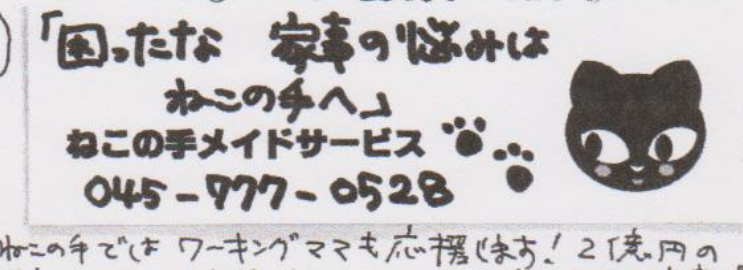 「困ったな 家事の悩みは
ねこの手へ」
ねこの手メイドサービス
045-777-0528
ねこの手では ワーキングママも応援します! 2億円の